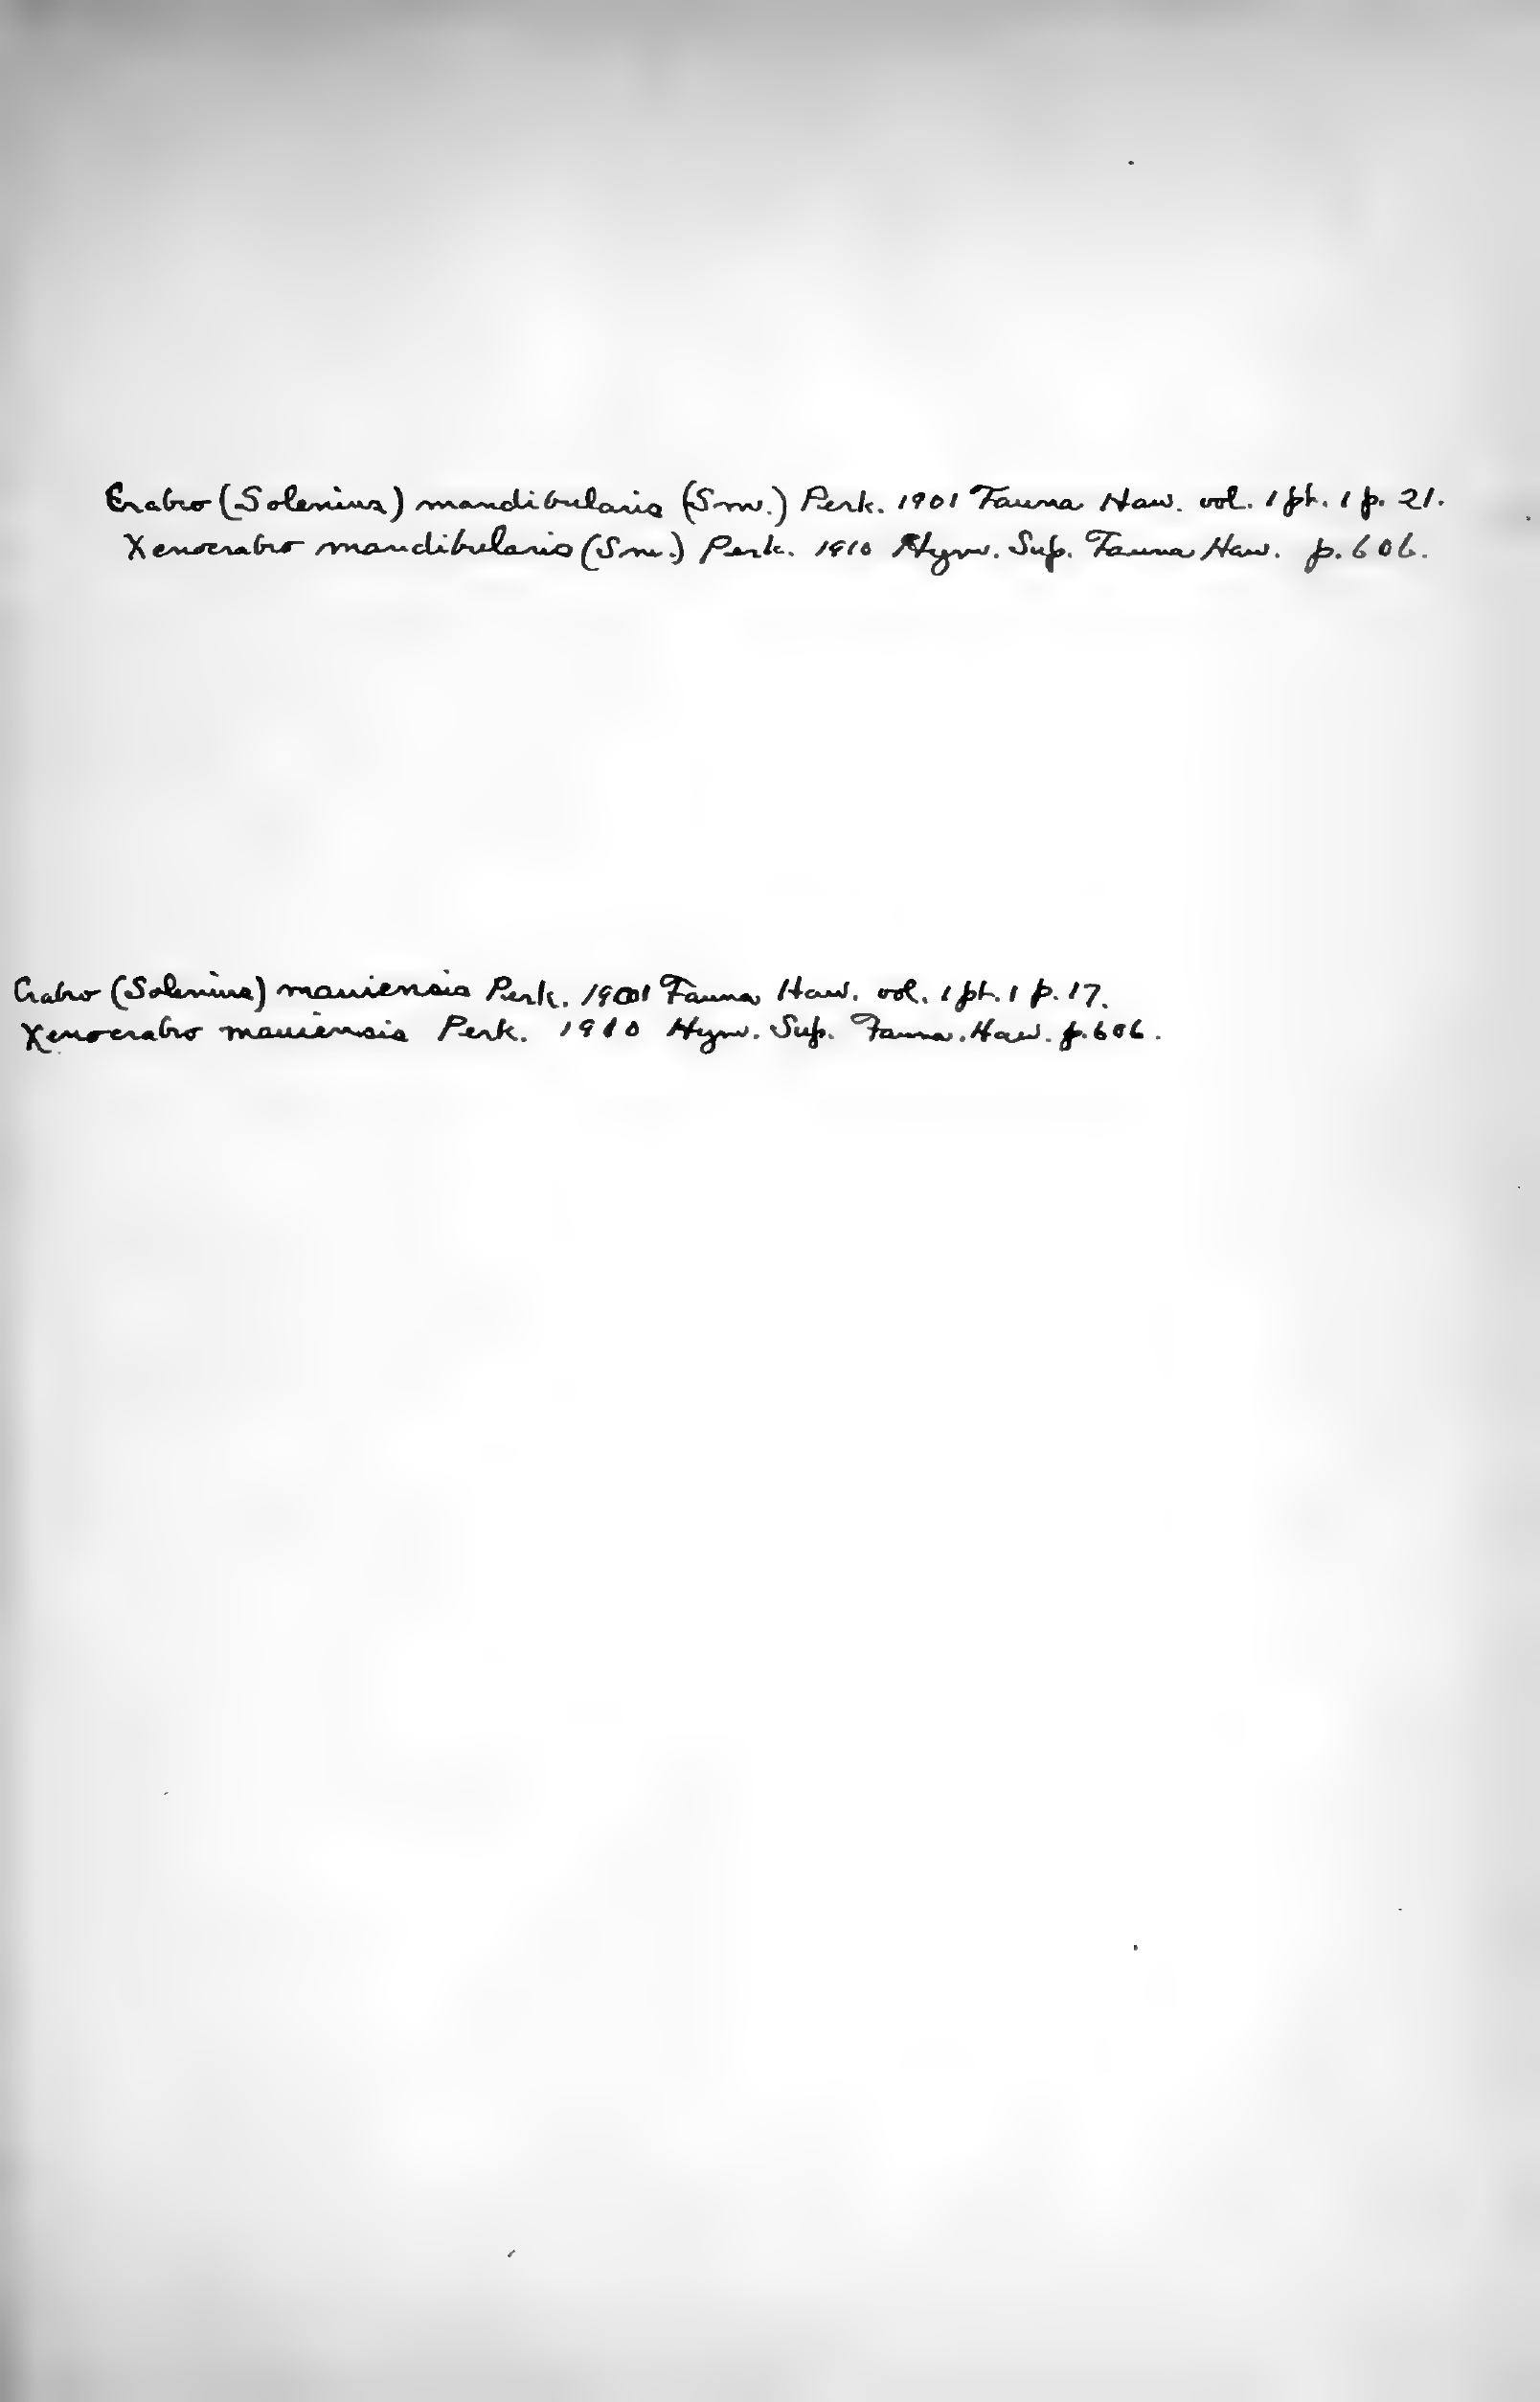 Crabro (Solenius) mandibularis (Sm.) Perk. 1901 Fauna Haw. vol. 1 pt. 1 p. 21.
Xenocrabro mandibularis (Sm.) Perk. 1910 Hym. Sup. Fauna Haw. p. 606.
Crabro (Solenius) mauiensis Perk. 1901 Fauna Haw. vol. 1 pt. 1 p. 17.
Xenocrabro mauiensis Perk. 1910 Hym. Sup. Fauna. Haw. p. 606.